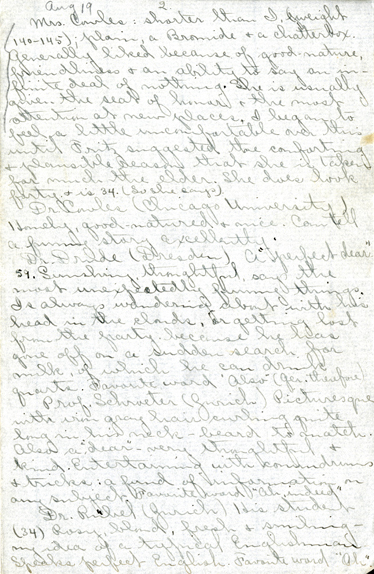 Aug 19 2.
Mrs. Cowles: shorter than I, (weight
140-145); plain, a Bromide & a chatterbox.
Generally liked because of good-nature,
friendliness & an ability to say an in-
finite deal of nothing. She is usually
given the seat of honor & the most
attention at new places. I began to
feel a little uncomfortable over this
until Fritz suggested the comforting
& plausible reason that she is taken
for much the elder. She does look
forty & is 34. (So she says)
Dr. Cowles (Chicago University)
homely, good-natured & nice. Can tell
a funny story excellently.
Dr. Drude (Dresden). A "perfect dear"
59. Sunshiny, thoughtful, says the
most unexpectedly funny things.
Is always wandering about with his
head in the clouds, or getting lost
from the party because he has
gone off on a sudden search for
milk, of which he can drink
quarts. Favorite word "Also"
Prof. Schröter (Zurich) Picturesque
with iron gray hair curling quite
long in his neck - beard to match.
Also a "dear" very thoughtful &
kind. Entertaining with conundrums
& tricks: a fund of information on
any subject. Favorite word "Ah, indeed"
Dr. Rübel (Zurich) his student
(34) Rosy, blond, fresh & smiling -
my idea of a typical Englishman
Speaks perfect English. Favorite word "Ah"